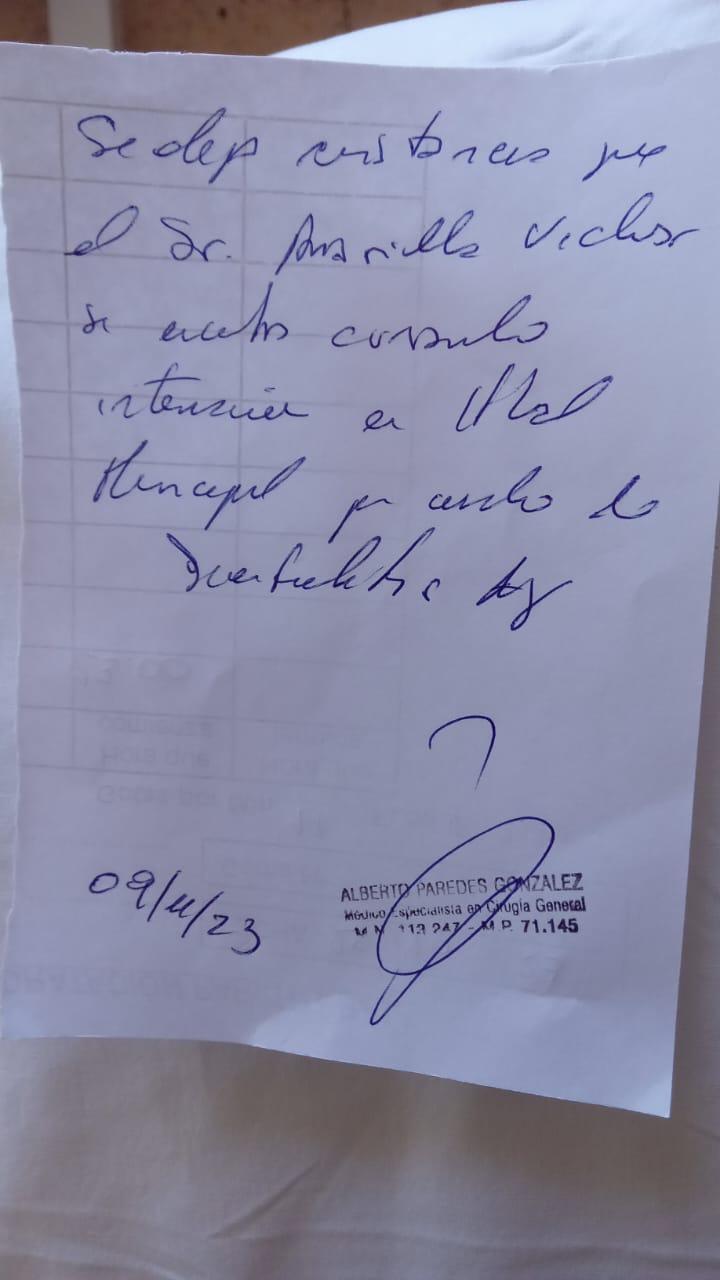 Se deja constancia que
el Sr. Amarilla Victor
se encuentra cursando
internacion en Htal
Municipal por cuadro de
09/11/23
ALBERTO PAREDES GONZALEZ
Médico Especialista en Cirugía General
M.N. 113.247 - M.P. 71.145